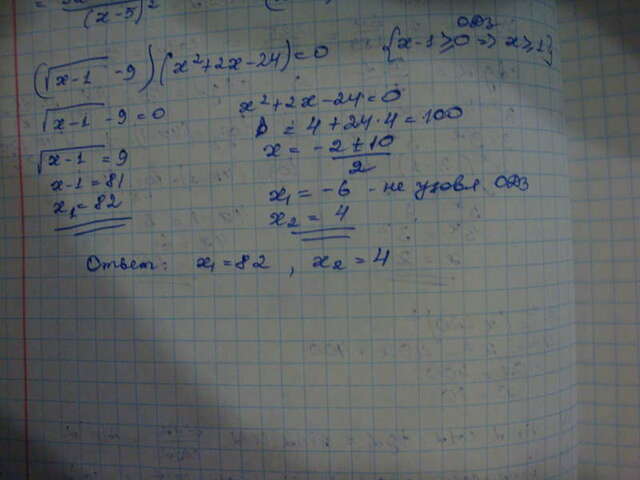 (x-5)²
(√x-1 -9)(x²+2x-24)=0 {x-1≥0 => x≥1}
ОДЗ
√x-1 -9=0
√x-1 =9
x-1=81
x₁=82
x²+2x-24=0
D = 4+24·4=100
x = -2±10
2
x₁ = -6 - не удовл. ОДЗ
x₂ = 4
Ответ: x₁=82, x₂=4